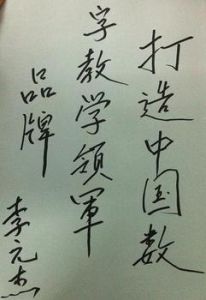 打造中国数
字教学领軍
品牌
李元杰